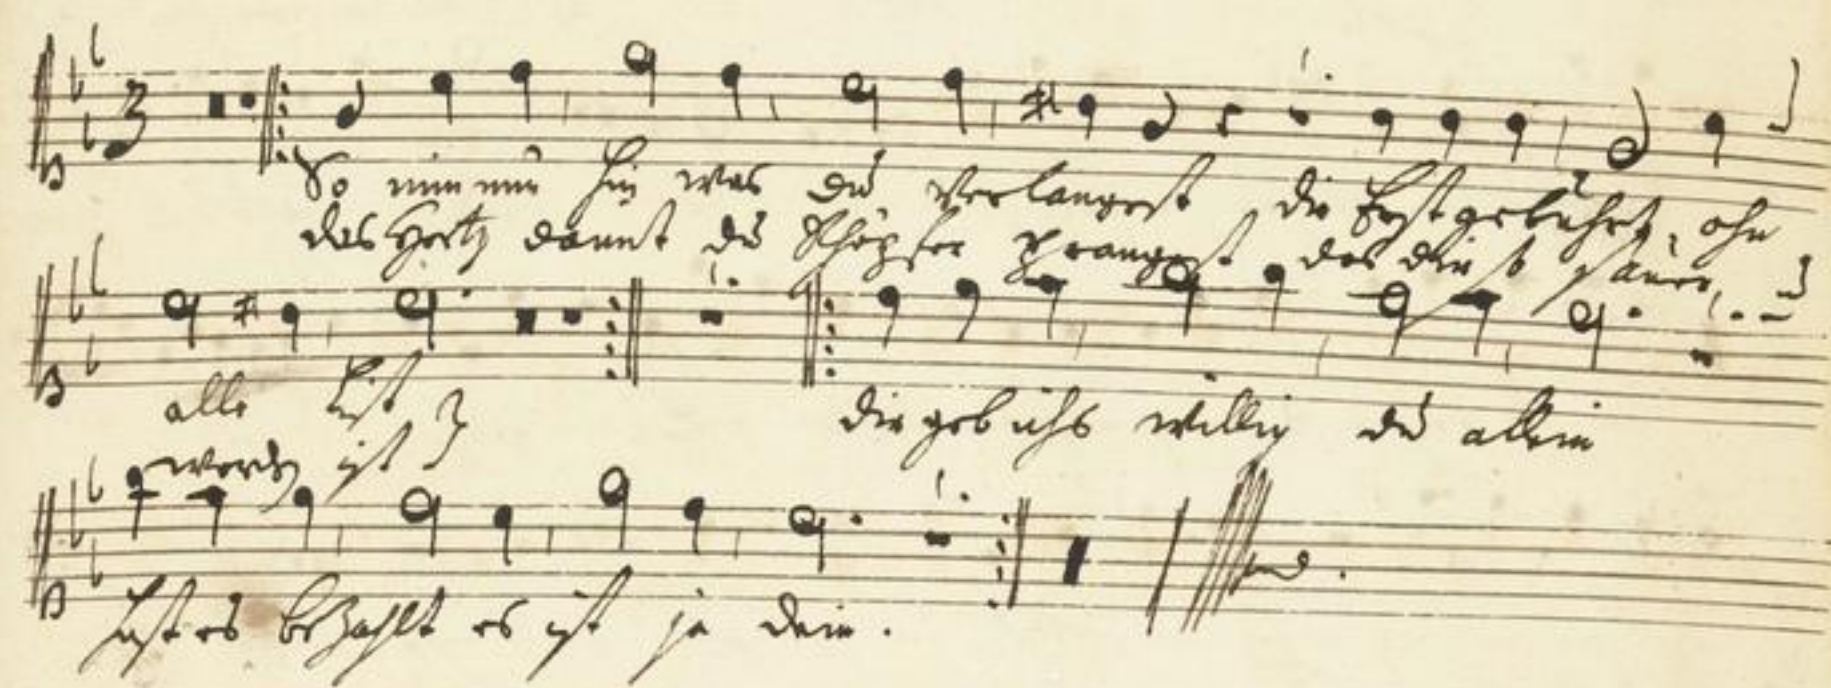 So nim nun hin was du verlangest die Erstgebuhrt, ohn
das Hertz damit du Schöpfer prangest das dir so sauer,
alle List
worden ist
dir geb ichs willig du allein
hast es bezahlt es ist ja dein.